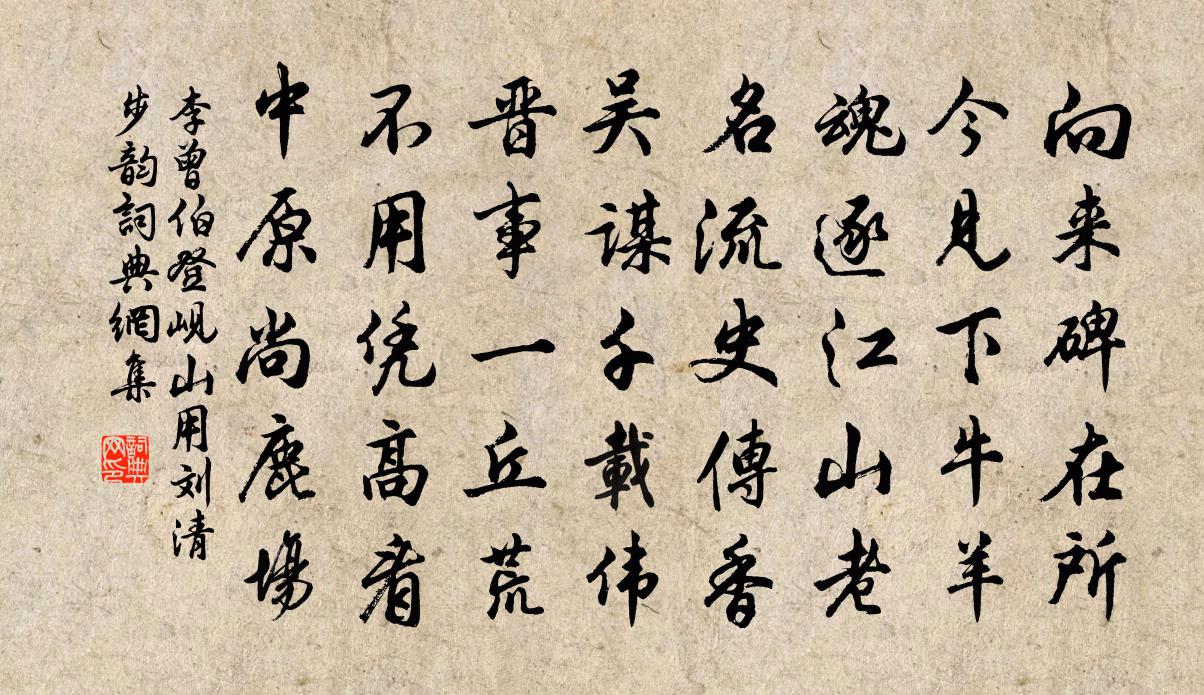 向来碑在所
今见下牛羊
魂逐江山老
名流史傳香
吴谋千載伟
晋事一丘荒
不用凭高看
中原尚鹿場
李曾伯登岘山用刘清
步韵詞典網集
詞典
网印